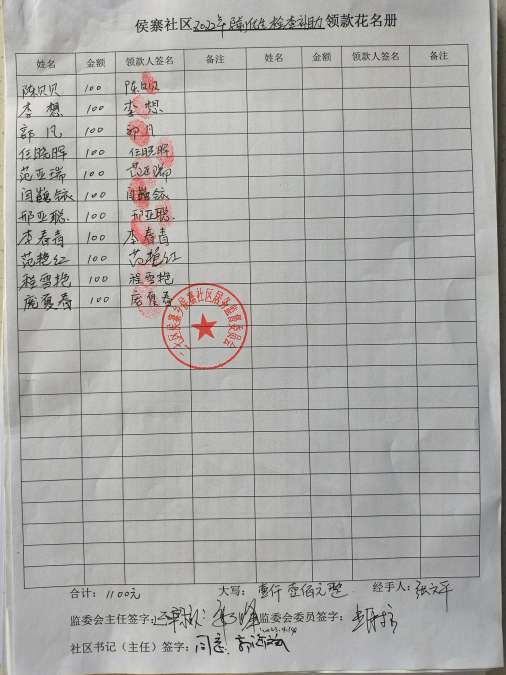 侯寨社区2022年 检查补助领款花名册
姓名 金额 领款人签名 备注 姓名 金额 领款人签名 备注
陈贝贝 100 陈贝贝
李想 100 李想
郭凡 100 郭凡
任晓晖 100 任晓晖
范亚瑞 100 范亚瑞
闫 100 闫
邢亚聪 100 邢亚聪
李春青 100 李春青
范艳红 100 范艳红
程雪艳 100 程雪艳
庞夏春 100 庞夏春
区侯寨乡侯寨社区居务监督委员会
合计：1100元 大写：壹仟壹佰元整 经手人：张六平
监委会主任签字： 监委会委员签字：
社区书记（主任）签字：同意